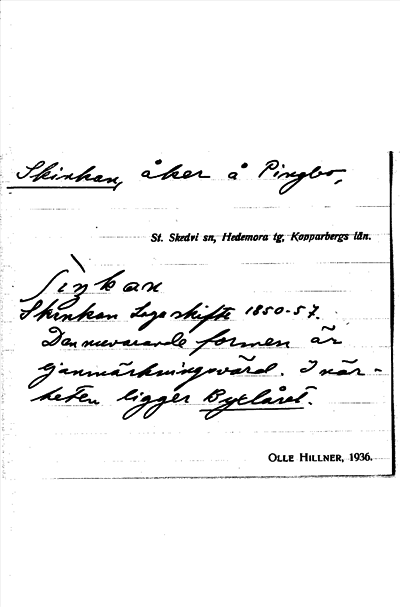 Skinkan, åker å Pingbo,
St. Skedvi sn, Hedemora tg, Kopparbergs län.
Skinkan Laga skifte 1850-57.
Den nuvarande formen är
anmärkningsvärd. I när-
heten ligger Byxlåret.
OLLE HILLNER, 1936.